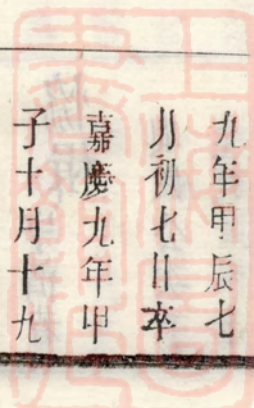 九年甲辰七
月初七日卒
嘉慶九年甲
子十月十九